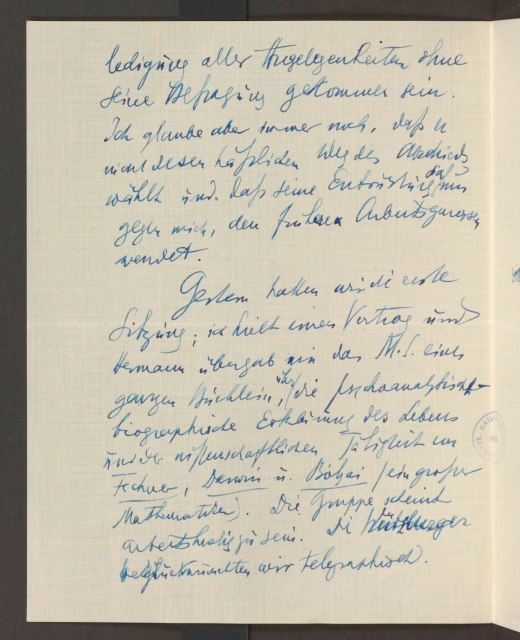 ledigung aller Angelegenheiten ohne
seine Befragung gekommen sein.
Ich glaube aber immer noch, daß er
nicht diesen häßlichen Weg des Abschieds
wählt und daß seine Entrüstung sich nur
gegen mich, den früheren Arbeitsgenossen
wendet.
Gestern hatten wir die erste
Sitzung; ich hielt einen Vortrag und
Hermann übergab mir das M.S. eines
ganzen Büchleins über die psychoanalytisch-
biographische Erklärung des Lebens
und der wissenschaftlichen Tätigkeit von
Fechner, Darwin u. Bólyai (ein großer
Mathematiker). Die Gruppe scheint
arbeitslustig zu sein. Die Würzburger
beglückwünschten wir telegraphisch.